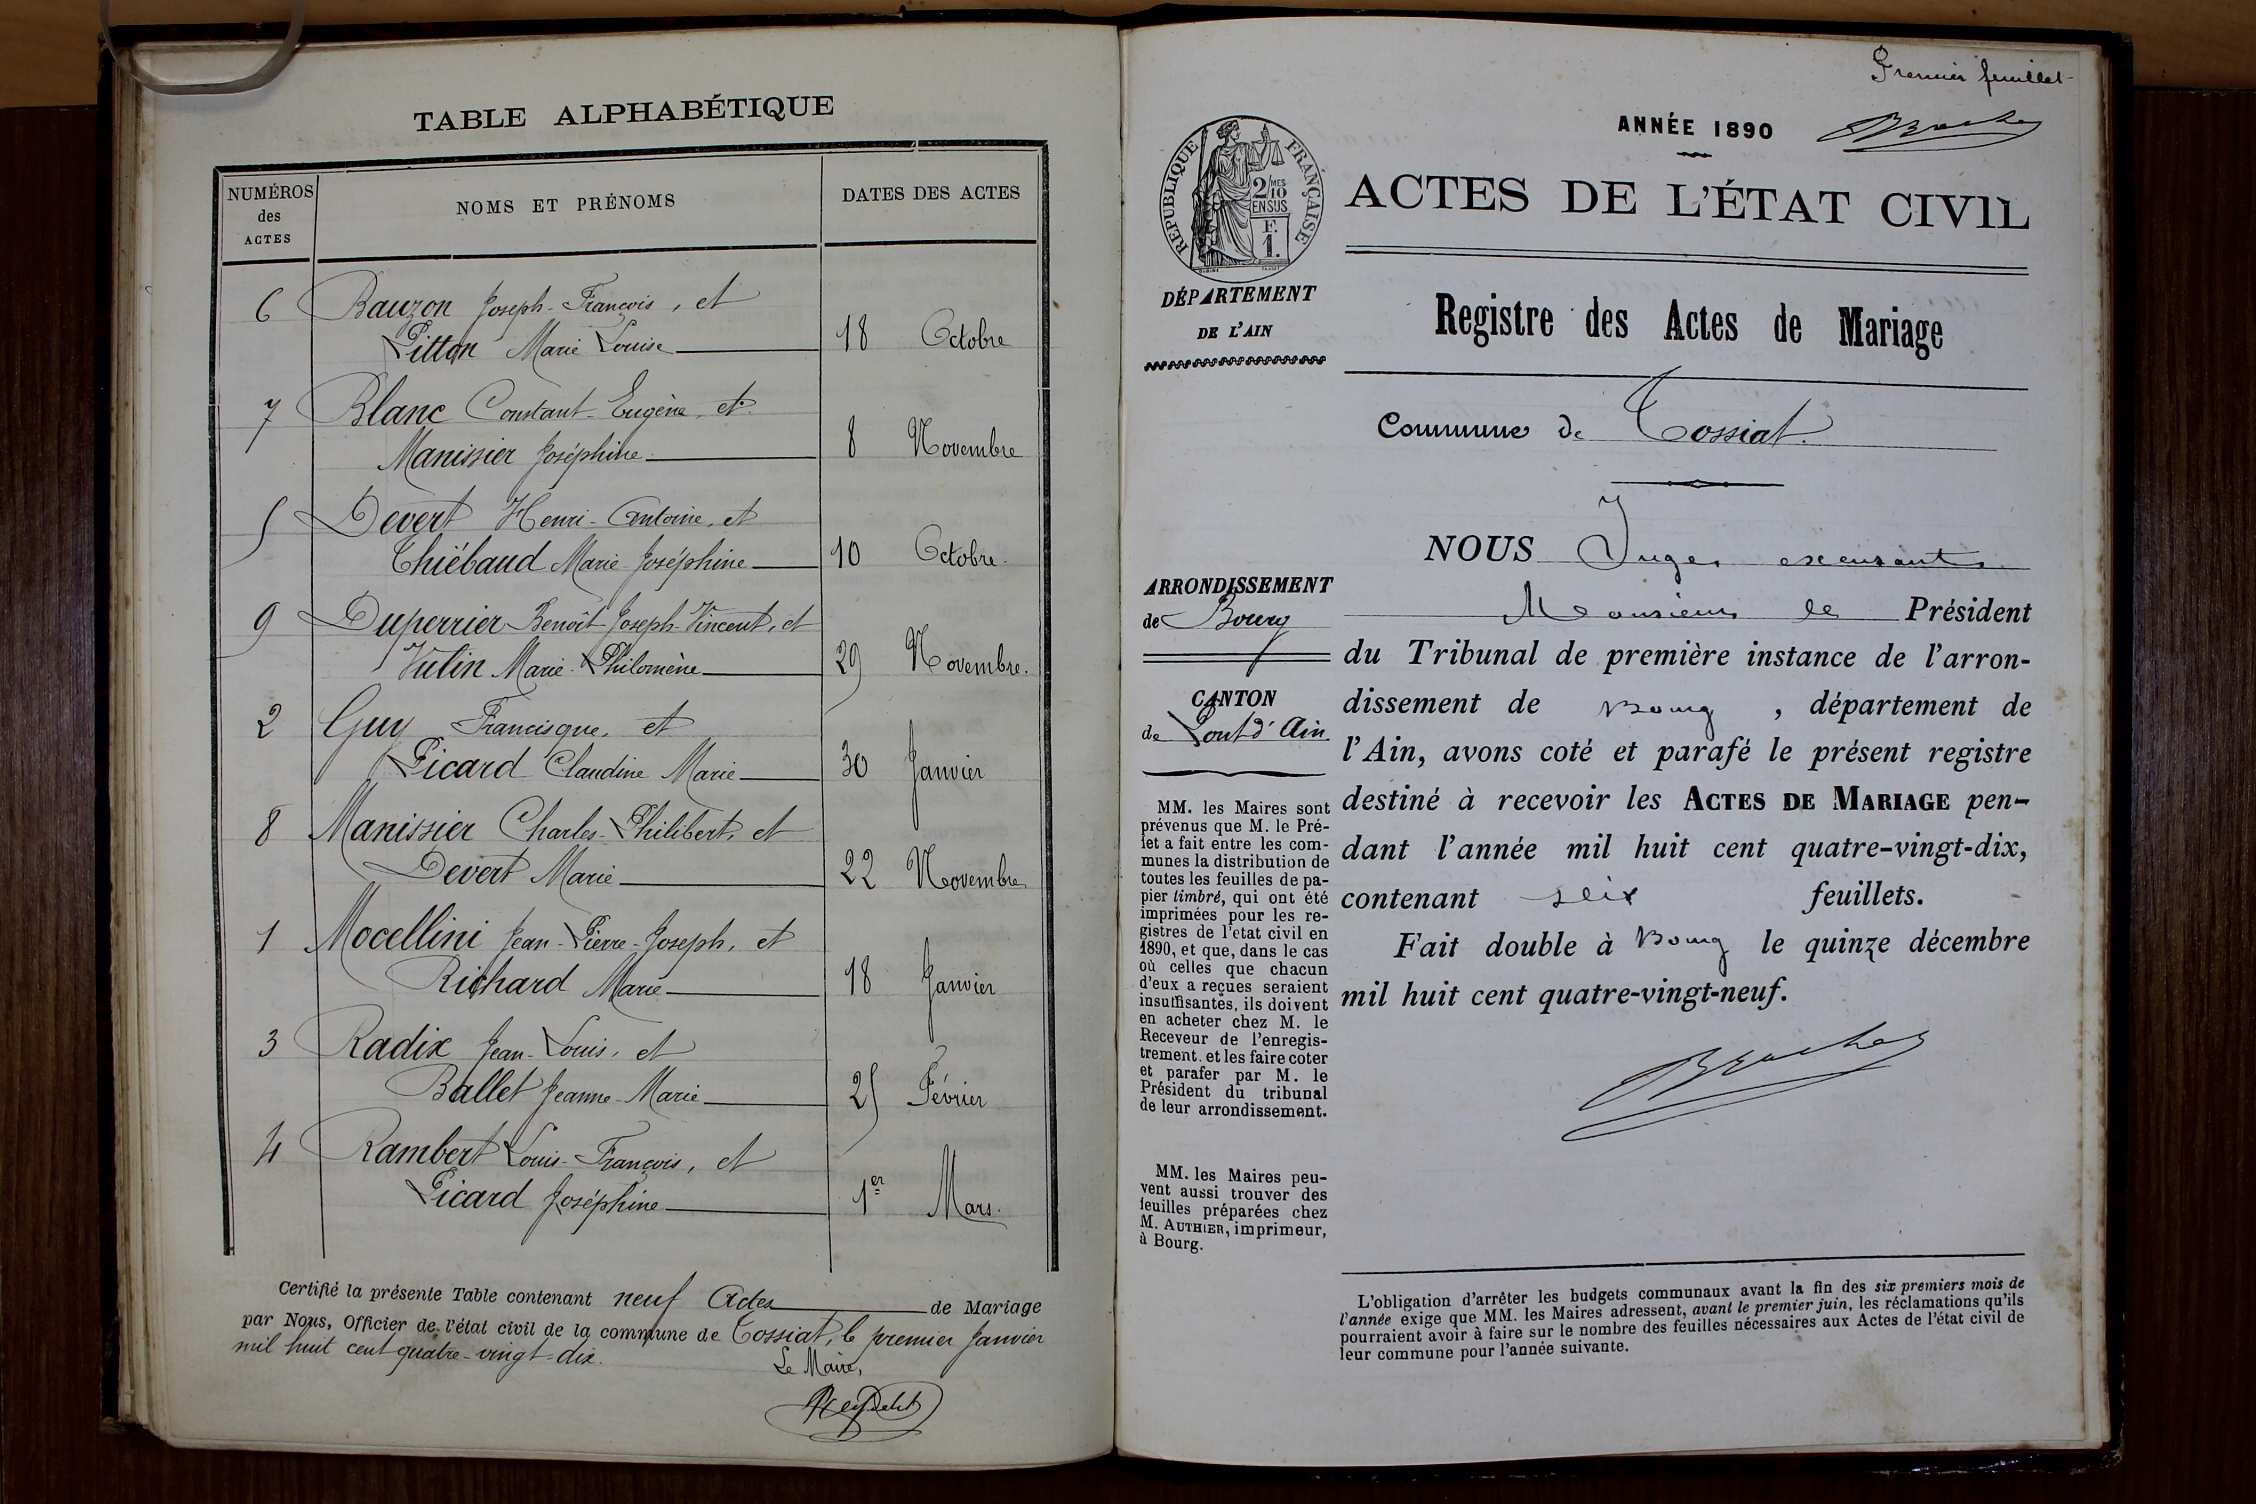 TABLE ALPHABÉTIQUE
NUMÉROS des ACTES
NOMS ET PRÉNOMS
DATES DES ACTES
6 Bauzon Joseph-François, et
Pitton Marie Louise 18 Octobre
7 Blanc Constant-Eugène et
Manissier Joséphine 8 Novembre
5 Devert Henri-Antoine, et
Thiébaud Marie-Joséphine 10 Octobre.
9 Duperrier Benoît-Joseph-Vincent, et
Vulin Marie-Philomène 29 Novembre.
2 Guy Francisque, et
Picard Claudine Marie 30 Janvier
8 Manissier Charles-Philibert, et
Devert Marie 22 Novembre
1 Mocellini Jean-Pierre-Joseph, et
Richard Marie 18 Janvier
3 Radix Jean-Louis, et
Ballet Jeanne-Marie 25 Février
4 Rambert Louis-François, et
Picard Joséphine 1er Mars.
Certifié la présente Table contenant neuf Actes de Mariage
par Nous, Officier de l'état civil de la commune de Tossiat, le premier Janvier
mil huit cent quatre-vingt-dix.
Le Maire,
Premier feuillet
ANNÉE 1890
RÉPUBLIQUE FRANÇAISE
2/10 MES
EN SUS
F.
1.
ACTES DE L'ÉTAT CIVIL
DÉPARTEMENT
DE L'AIN
Registre des Actes de Mariage
Commune de Tossiat.
ARRONDISSEMENT
de Bourg
CANTON
de Pont d'Ain
MM. les Maires sont
prévenus que M. le Pré-
fet a fait entre les com-
munes la distribution de
toutes les feuilles de pa-
pier timbré, qui ont été
imprimées pour les re-
gistres de l'état civil en
1890, et que, dans le cas
où celles que chacun
d'eux a reçues seraient
insuffisantes, ils doivent
en acheter chez M. le
Receveur de l'enregis-
trement. et les faire coter
et parafer par M. le
Président du tribunal
de leur arrondissement.
MM. les Maires peu-
vent aussi trouver des
feuilles préparées chez
M. AUTHIER, imprimeur,
à Bourg.
NOUS Juge
Monsieur le Président
du Tribunal de première instance de l'arron-
dissement de Bourg, département de
l'Ain, avons coté et parafé le présent registre
destiné à recevoir les ACTES DE MARIAGE pen-
dant l'année mil huit cent quatre-vingt-dix,
contenant feuillets.
Fait double à Bourg le quinze décembre
mil huit cent quatre-vingt-neuf.
L'obligation d'arrêter les budgets communaux avant la fin des six premiers mois de
l'année exige que MM. les Maires adressent, avant le premier juin, les réclamations qu'ils
pourraient avoir à faire sur le nombre des feuilles nécessaires aux Actes de l'état civil de
leur commune pour l'année suivante.